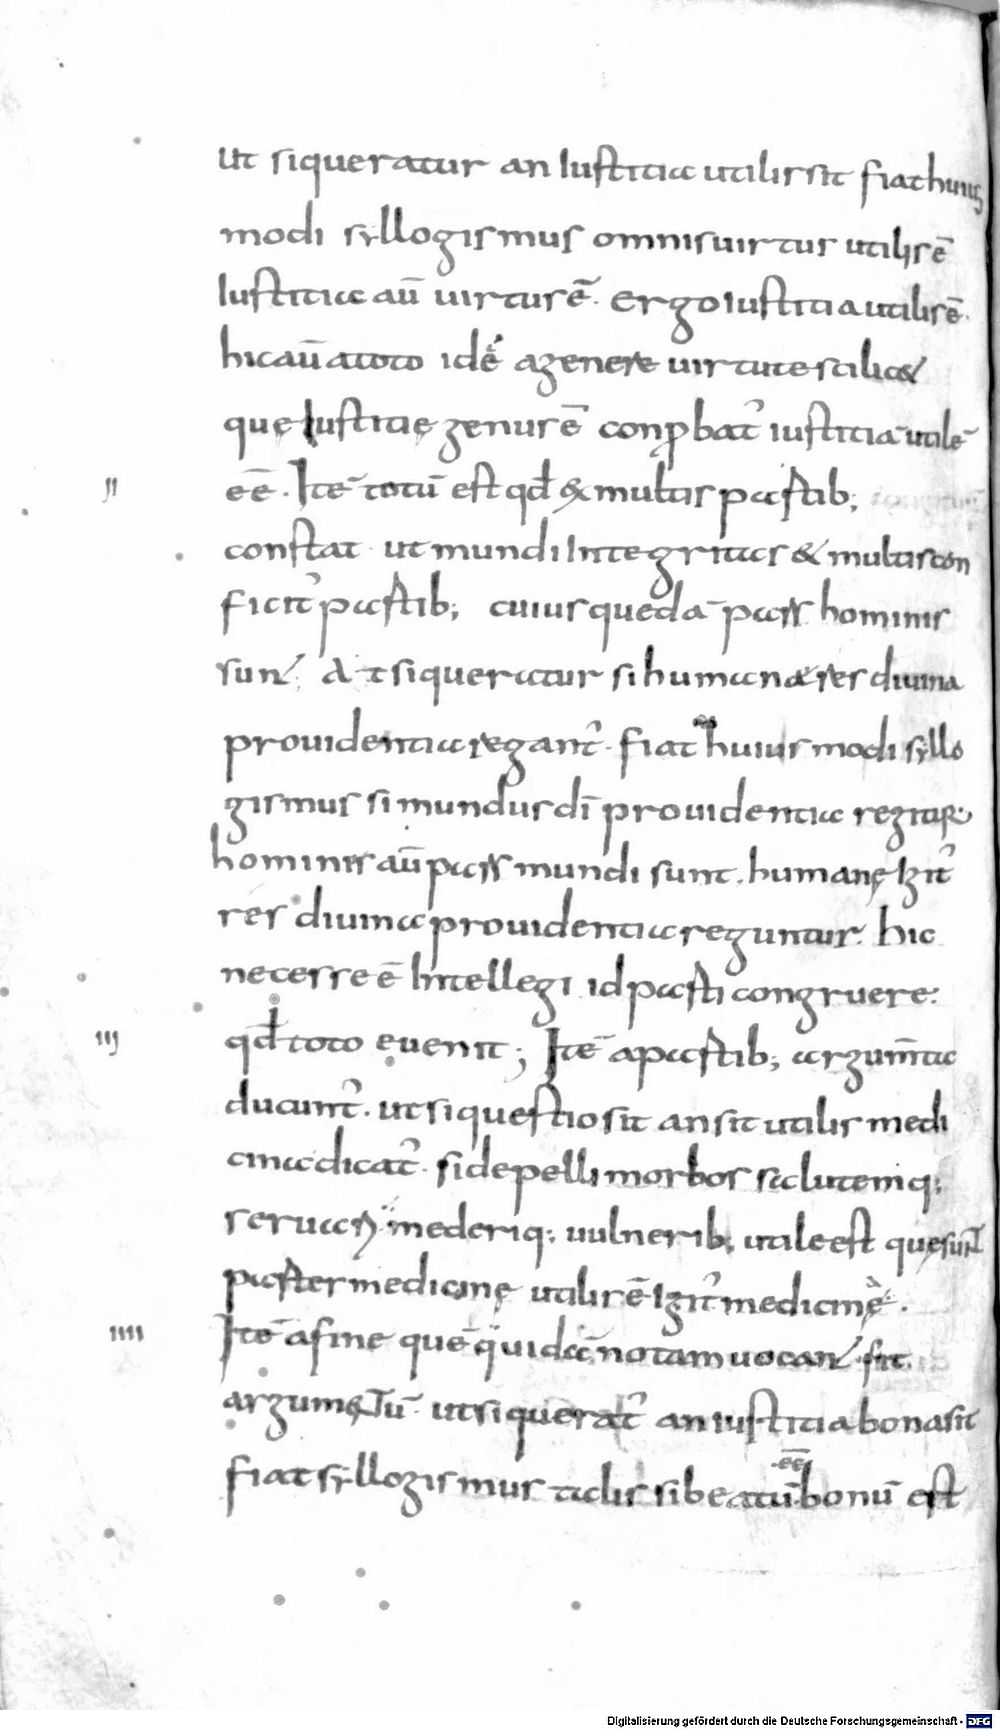 ut siqueratur an Iustitia utilis sit fiat huius
modi syllogismus omnis uirtus utilis ē
Iustitia aū uirtus ē. Ergo iustitia utilis ē.
hic aū a toto idē a genere uirtute scilic&
quę Iustitię genus ē conꝓbat᷑ iustitiā utilē
eē. Itē totū est qđ & multis partib;
constat ut mundi Integritas & multis con
ficit᷑ partib; cuius quedā pars hominis
sunt. At si queratur si humanæ res diuina
prouidentia regant᷑. fiat huius modi syllo
gismus si mundus dī prouidentia regitur
hominis aū pars mundi sunt. humanę Igit᷑
res diuina prouidentia reguntur. hic
necesse ē Intellegi id parti congruere.
qđ toto euenit; Itē a partib; argum̄ta
ducunt᷑. ut si questio sit an sit utilis medi
cina dicat᷑. si depelli morbos salutemq;
seruari mederiq; uulnerib; utile est quę sunt
partes medicinę utilis ē Igit᷑ medicinę.
Itē a fine quē quidā notam uocant fit
argumētū. ut si querat᷑ an iustitia bona sit
fiat syllogismus talis si beatū eē bonū est
II
III
IIII
Digitalisierung gefördert durch die Deutsche Forschungsgemeinschaft - DFG